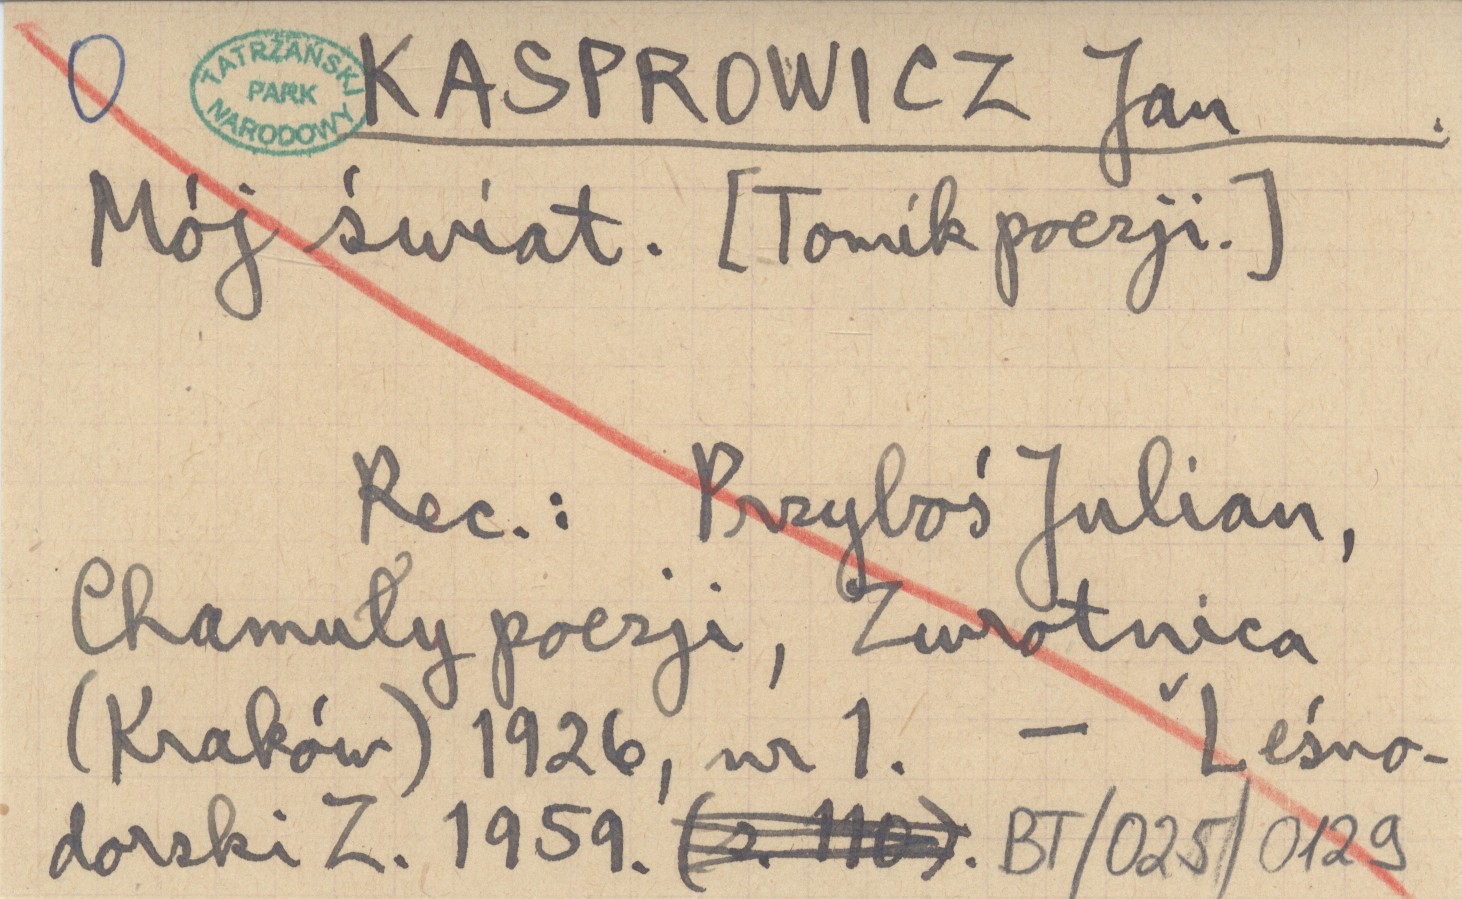 TATRZAŃSKI
PARK
NARODOWY
KASPROWICZ Jan .
Mój świat. [Tomik poezji.]
Rec.: Przyboś Julian,
Chamuły poezji, Zwrotnica
(Kraków) 1926, nr 1. — Leśno-
dorski Z. 1959. (s. 110). BT/025/0129